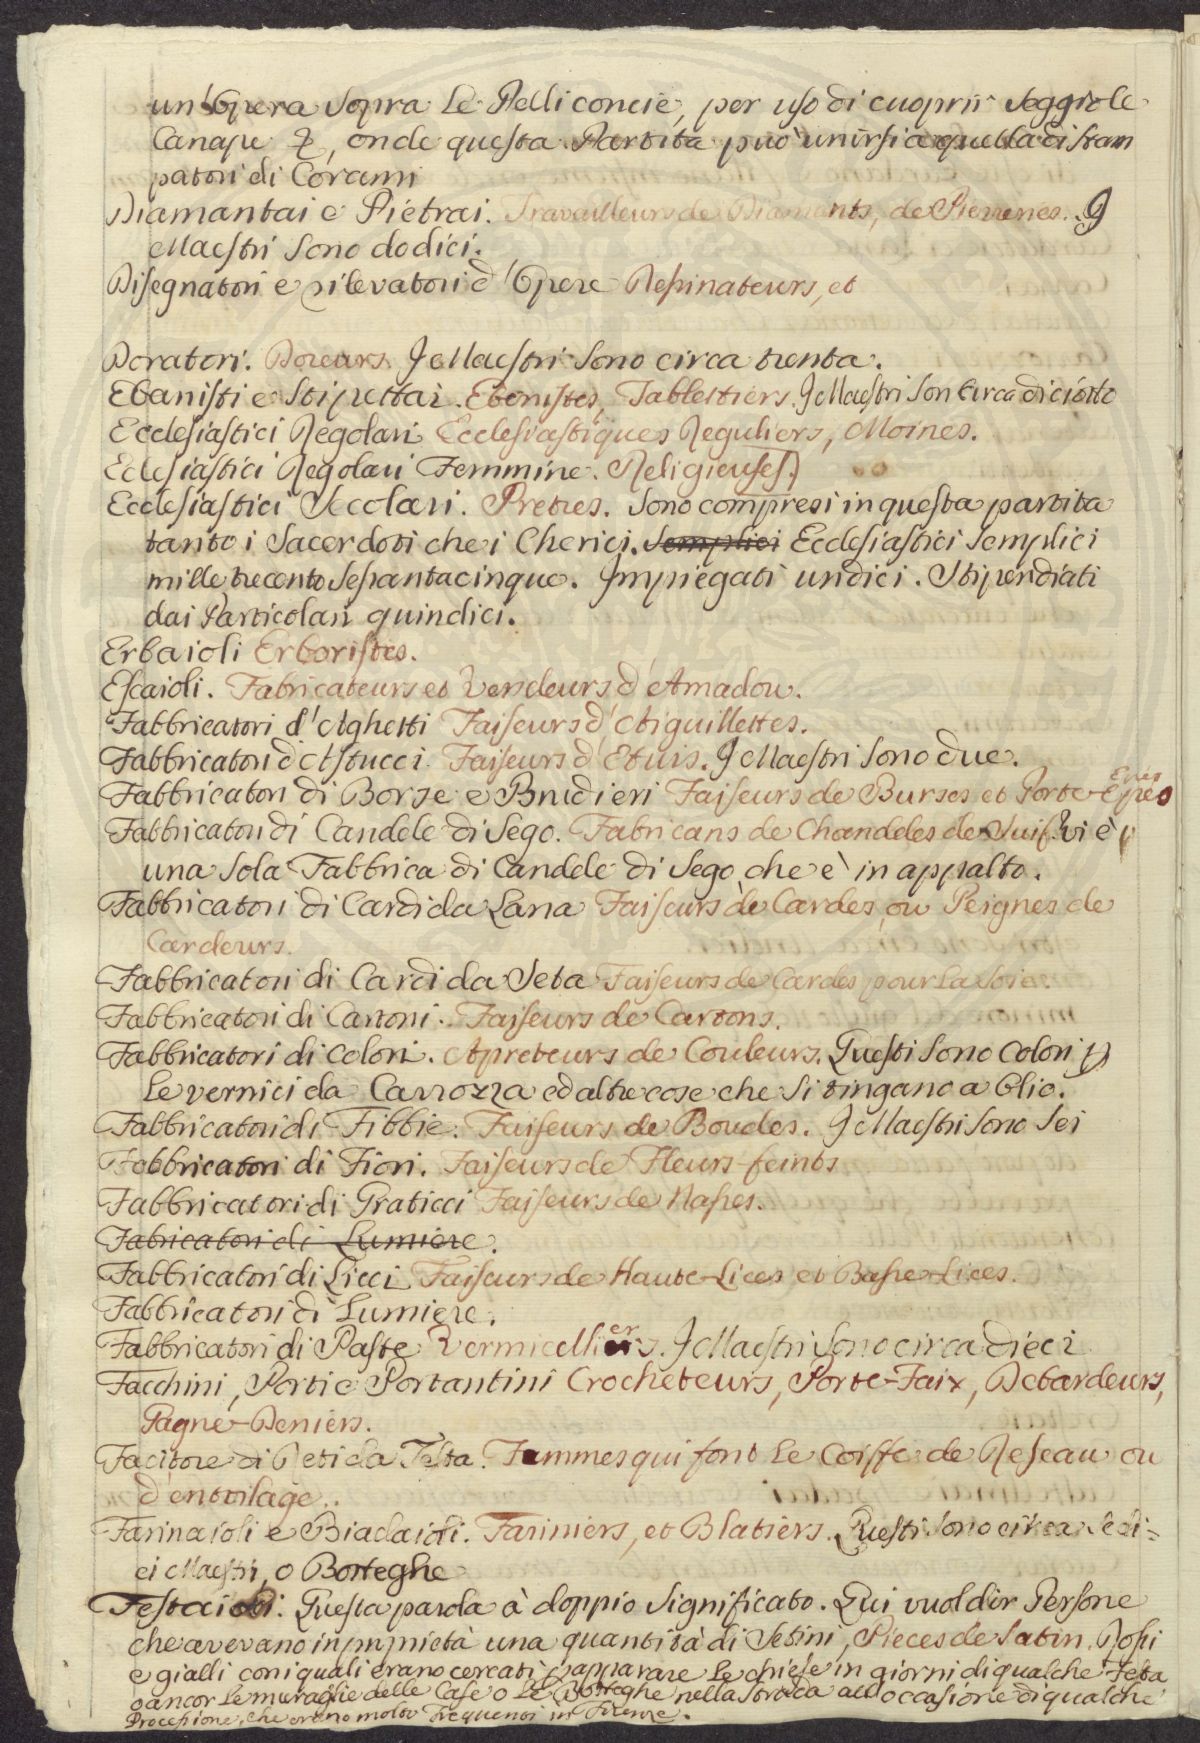 un'Opera sopra le Pelli concie, per uso di cuoprir seggiole
Canape &, onde questa Partita può unirsi a quella di Stam
patori di Corami
Diamantai e Pietrai. Travailleurs de Diamants, de Pierreries. J
Maestri sono dodici.
Disegnatori e rilevatori d'Opere Dessinateurs, et
Doratori. Doreurs. J Maestri sono circa trenta.
Ebanisti e Stipettai. Ebenistes, Tablettiers. J Maestri son circa diciotto
Ecclesiastici Regolari Ecclesiastiques Reguliers, Moines.
Eclesiastici Regolari Femmine. Religieuses.)
Ecclesiastici Secolari. Pretres. Sono compresi in questa partita
tanto i Sacerdoti che i Cherici. Semplici Ecclesiastici semplici
mille trecento sessantacinque. Impiegati undici. Stipendiati
dai Particolari quindici.
Erbaioli Erboristes.
Escaioli. Fabricateurs et Vendeurs d'Amadou.
Fabbricatori d'Aghetti Faiseurs d'Aiguillettes.
Fabbricatori d'Astucci Faiseurs d'Etuis. J Maestri sono due.
Fabbricatori di Borse e Brudieri Faiseurs de Burses et Porte-Epées
Fabbricatori di Candele di Sego. Fabricans de Chandeles de Suif. Vi è
una sola Fabbrica di Candele di Sego che è in appalto.
Fabbricatori di Cardi da Lana Faiseurs de Cardes, ou Peignes de
Cardeurs.
Fabbricatori di Cardi da Seta Faiseurs de Cardes pour La Soie
Fabbricatori di Cartoni. Faiseurs de Cartons.
Fabbricatori di Colori. Apreteurs de Couleurs. Questi sono Colori p
le vernici da Carrozza ed altre cose che si tingano a Olio.
Fabbricatori di Fibbie. Faiseurs de Boucles. J Maestri sono sei
Fabbricatori di Fiori. Faiseurs de Fleurs-feints
Fabbricatori di Graticci Faiseurs de Nasses.
Fabricatori di Lumiere.
Fabbricatori di Licci Faiseurs de Haute-Lices et Basse-Lices.
Fabbricatori di Lumiere.
Fabbricatori di Paste Vermicelliers. J Maestri sono circa dieci
Facchini, Porti e Portantini Crocheteurs, Porte-Faix, Debardeurs,
Gagne-Deniers.
Facitore di Reti da Testa. Fammes qui font Le Coiffe de Reseau ou
d'entoilage.
Farinaioli e Biadaioli. Fariniers, et Blatiers. Questi sono circa sedi-
ci Maestri, o Botteghe
Festaioli. Questa parola à doppio significato. Qui vuol dir Persone
che avevano in proprietà una quantità di Setini, Pieces de Satin, Rossi
e gialli con i quali erano cercati p apparare le chiese in giorni di qualche Festa
o ancor le muraglie delle Case o le Botteghe nella strada all'occasione di qualche
Processione, che erano molto frequenti in Firenze.